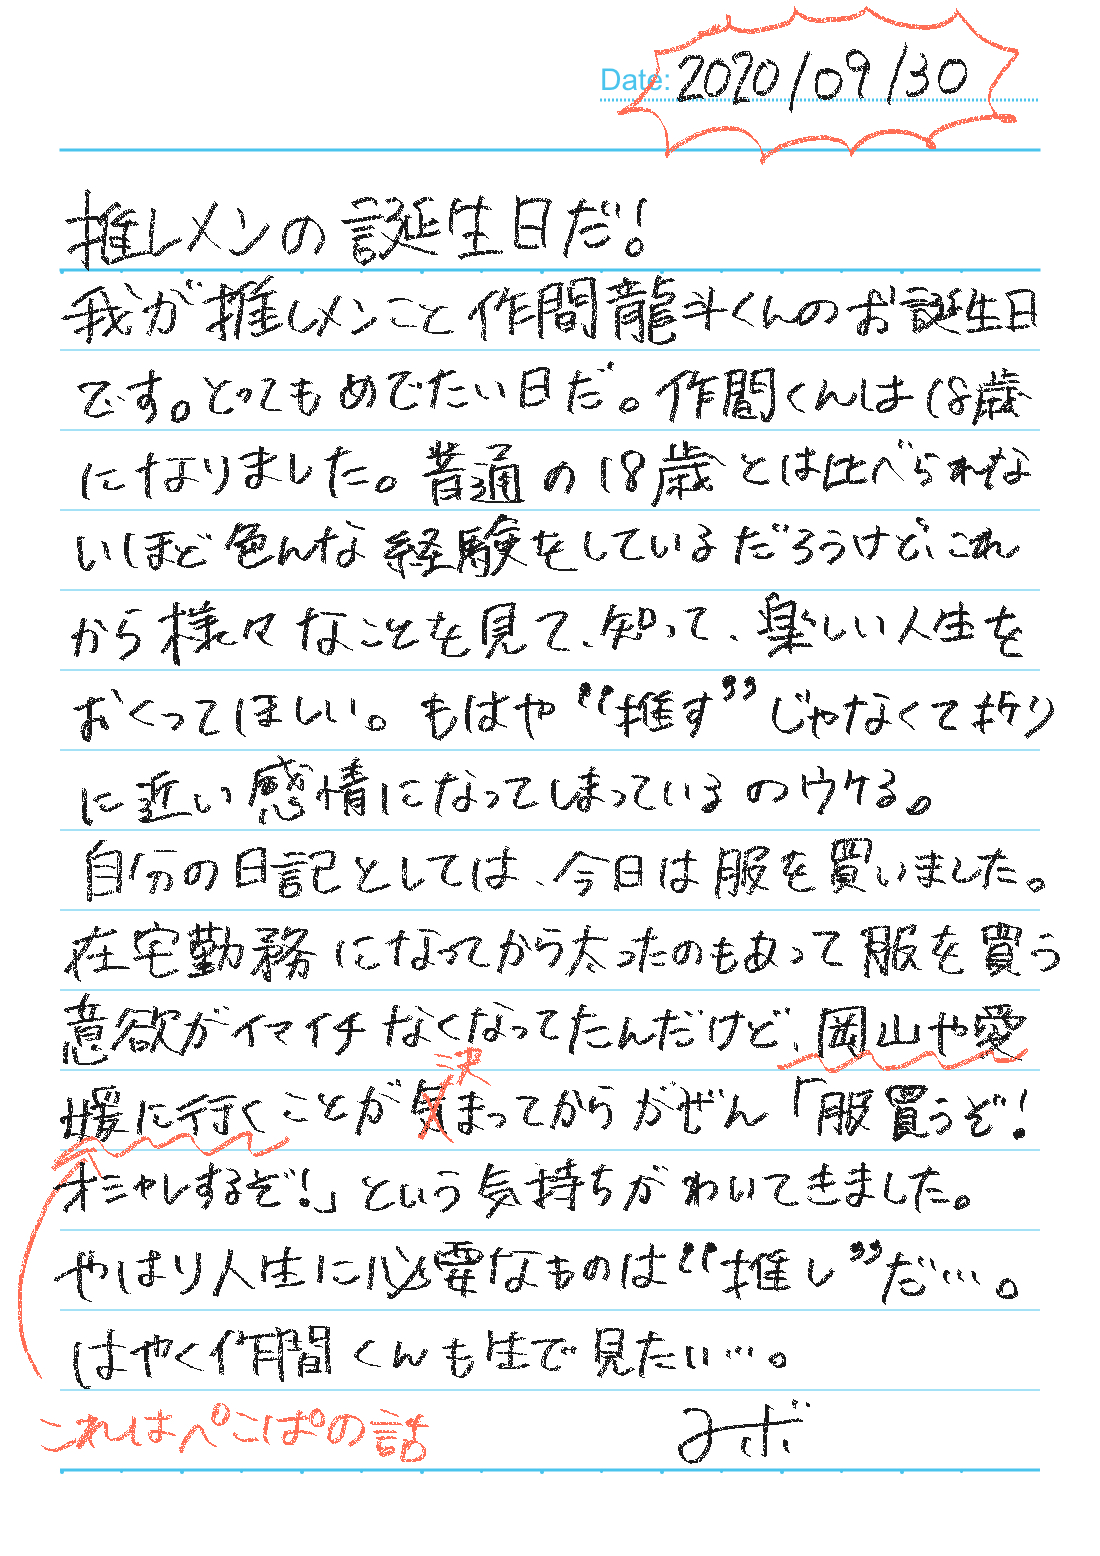 Date: 2020/09/30
推しメンの誕生日だ!
我が推しメンこと作間龍斗くんのお誕生日
です。とってもめでたい日だ。作間くんは18歳
になりました。普通の18歳とは比べられな
いほど色んな経験をしているだろうけど、これ
から様々なことを見て、知って、楽しい人生を
おくってほしい。もはや“推す”じゃなくて祈り
に近い感情になってしまっているのウケる。
自分の日記としては、今日は服を買いました。
在宅勤務になってから太ったのもあって服を買う
意欲がイマイチなくなってたんだけど、岡山や愛
決
媛に行くことが気まってからがぜん「服買うぞ!
オシャレするぞ!」という気持ちがわいてきました。
やはり人生に必要なものは“推し”だ…。
はやく作間くんも生で見たい…。
これはぺこぱの話
みボ